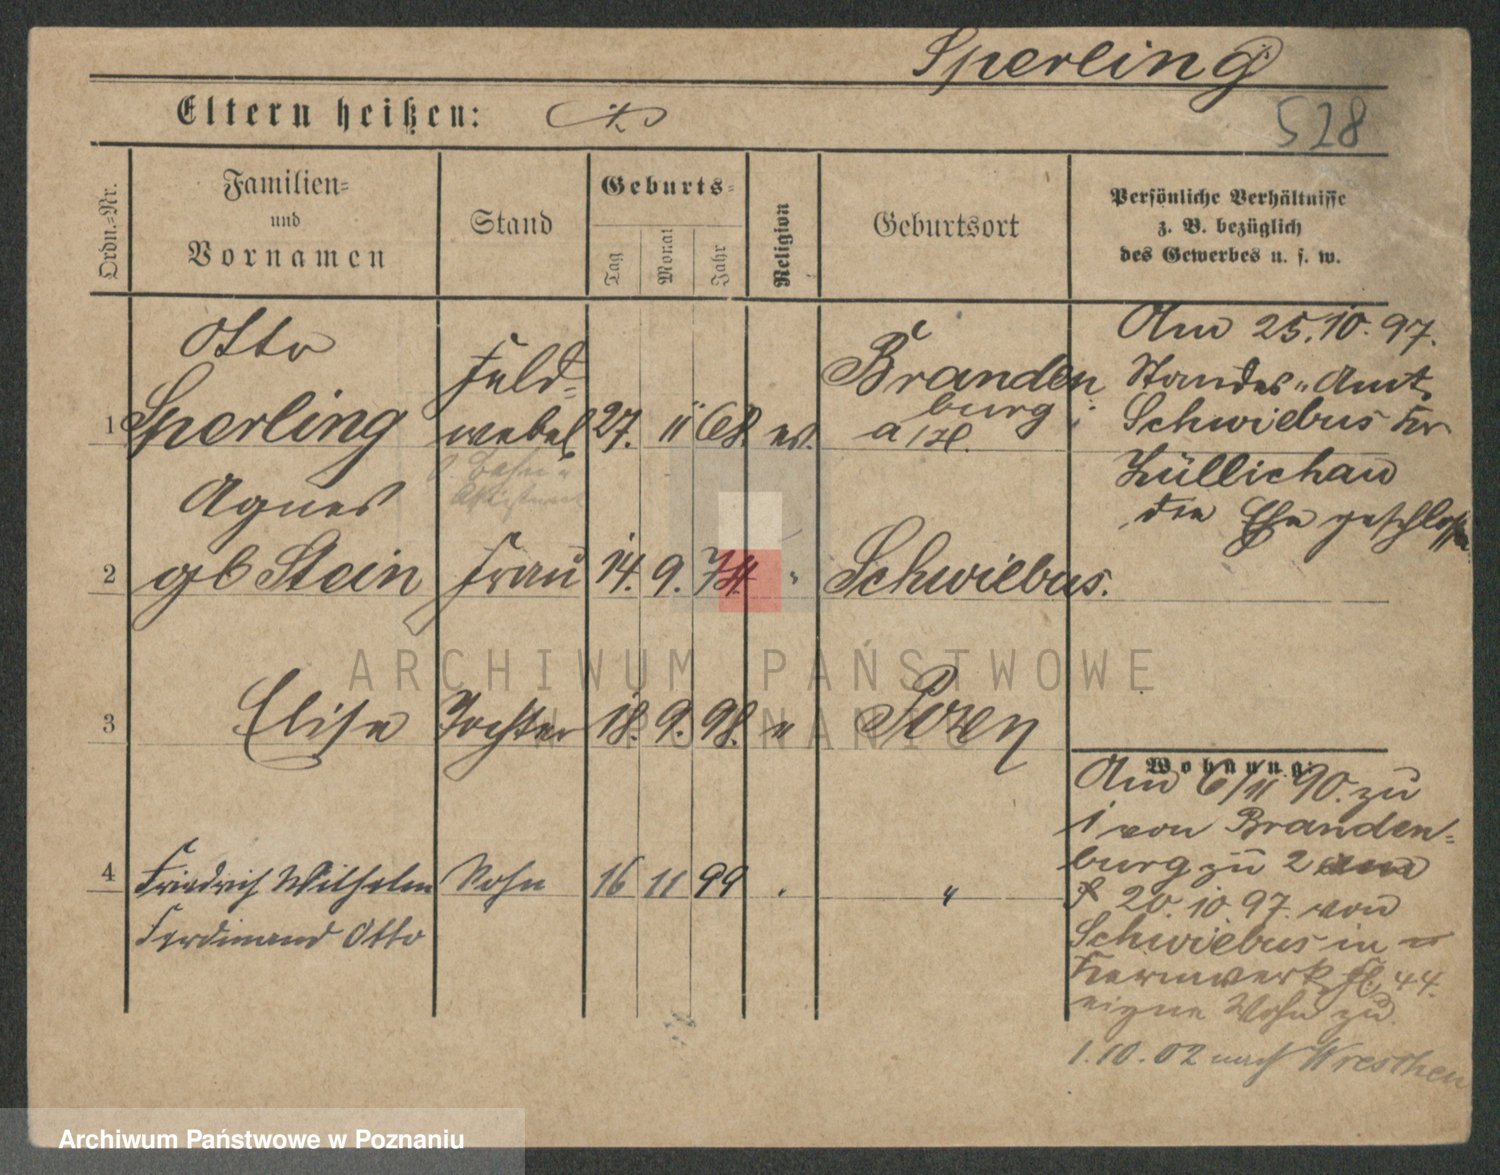 Sperling
528
Eltern heißen:
Ordn.-Nr.
Familien-
und
Vornamen
Stand
Geburts-
Tag
Monat
Jahr
Religion
Geburtsort
Persönliche Verhältnisse
z. B. bezüglich
des Gewerbes u. s. w.
1
Otto
Sperling
Feld-
webel
27.
11
68.
ev.
Branden
burg
a/H.
Am 25.10.97.
Standes-Amt
Schwiebus Kr
Züllichau
die Ehe geschlossen
2
Agnes
gb Stein
Frau
14.
9.
74.
"
Schwiebus.
3
Elise
Tochter
18.
9.
98.
"
Posen
4
Friedrich Wilhelm
Ferdinand Otto
Sohn
16
11
99
"
Wohnung:
Am 6/11 90. zu
1 von Branden-
burg zu 2
20.10.97. von
Schwiebus in
Kernwerk 44.
eigne Wohn zu
1.10.02 nach Wreschen
ARCHIWUM PAŃSTWOWE
W POZNANIU
Archiwum Państwowe w Poznaniu